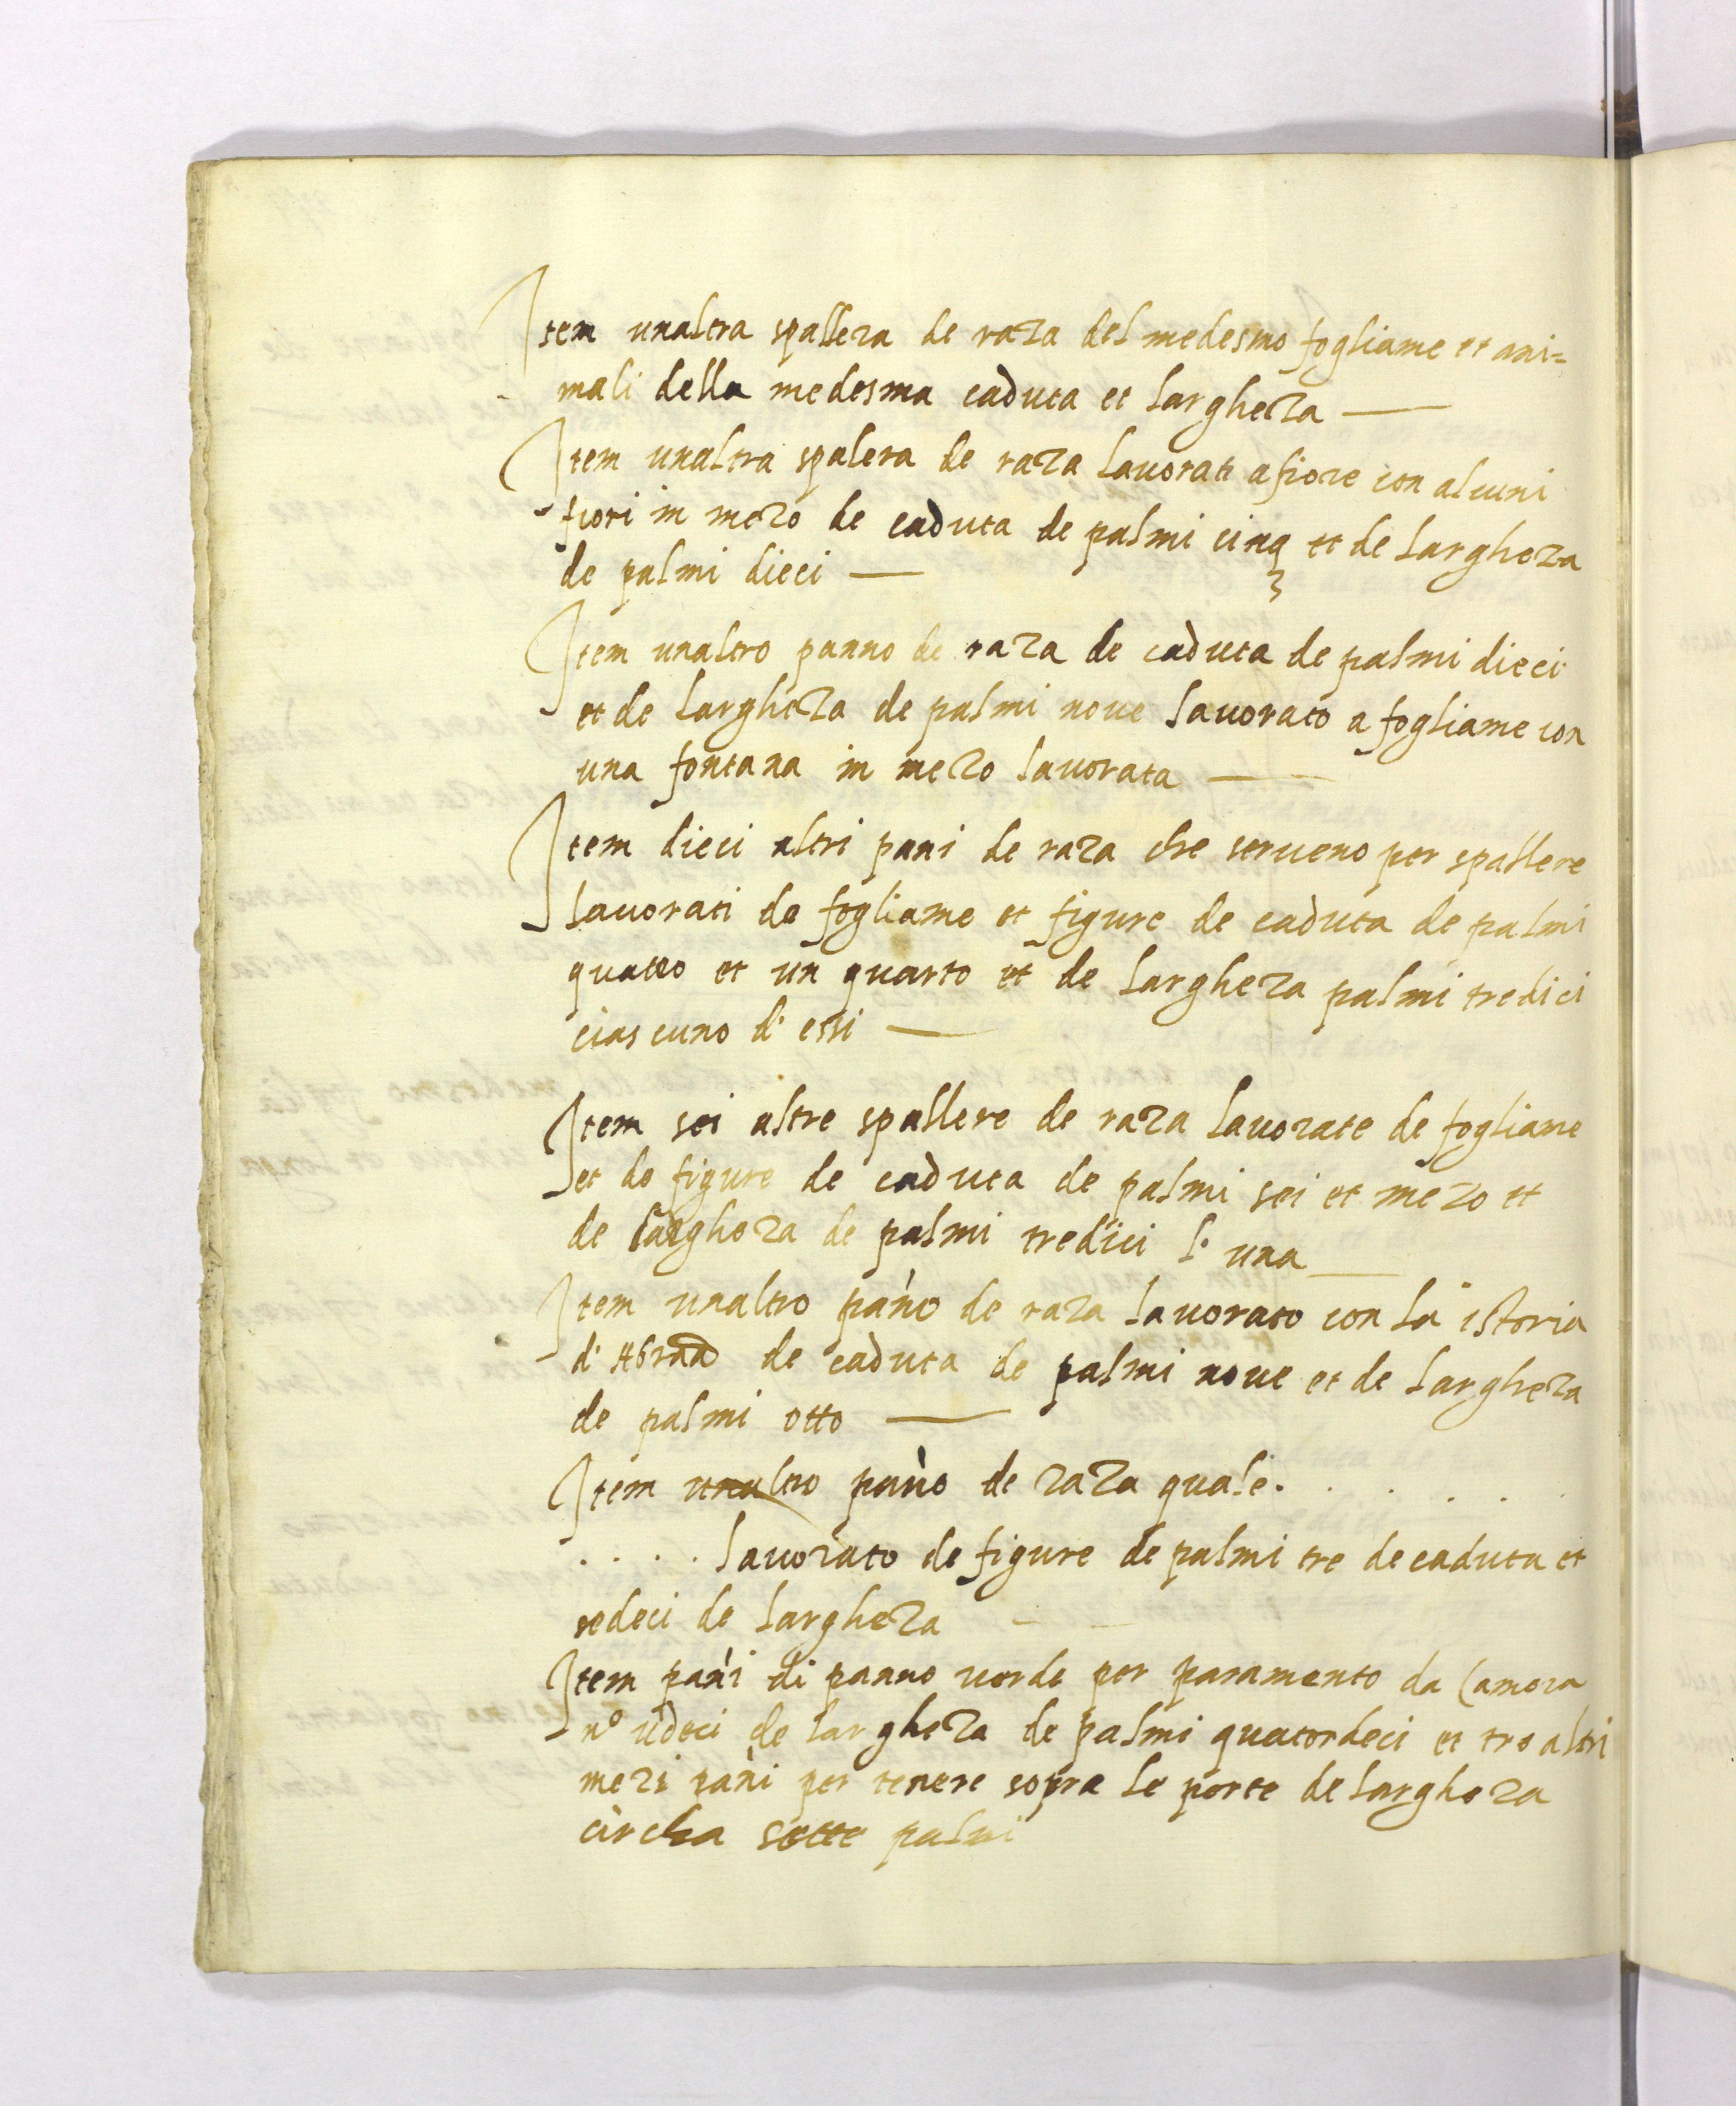 Item unaltra spallera de raza del medesmo fogliame et ani=
mali della medesma caduta et largheza —
Item unaltra spalera de raza lavorati a fiore con alcuni
fiori in mezo de caduta de palmi cinq et de largheza
de palmi dieci —
Item unaltro panno de raza de caduta de palmi dieci
et de largheza de palmi nove lavorato a fogliame con
una fontana in mezo lavorata —
Item dieci altri pani de raza che serveno per spallere
lavorati de fogliame et figure de caduta de palmi
quatro et un quarto et de largheza palmi tredici
ciascuno d' essi —
Item sei altre spallere de raza lavorate de fogliame
et de figure de caduta de palmi sei et mezo et
de largheza de palmi tredici l' una —
Item unaltro pano de raza lavorato con la istoria
d' Abraa de caduta de palmi nove et de largheza
de palmi otto —
Item unaltro pano de raza quale . . . . . .
. . . . lavorato de figure de palmi tre de caduta et
sedeci de largheza —
Item pani di panno verde per paramento da camera
n° udeci de largheza de palmi quatordeci et tre altri
mezi pani per tenere sopra le porte de largheza
circha sette palmi